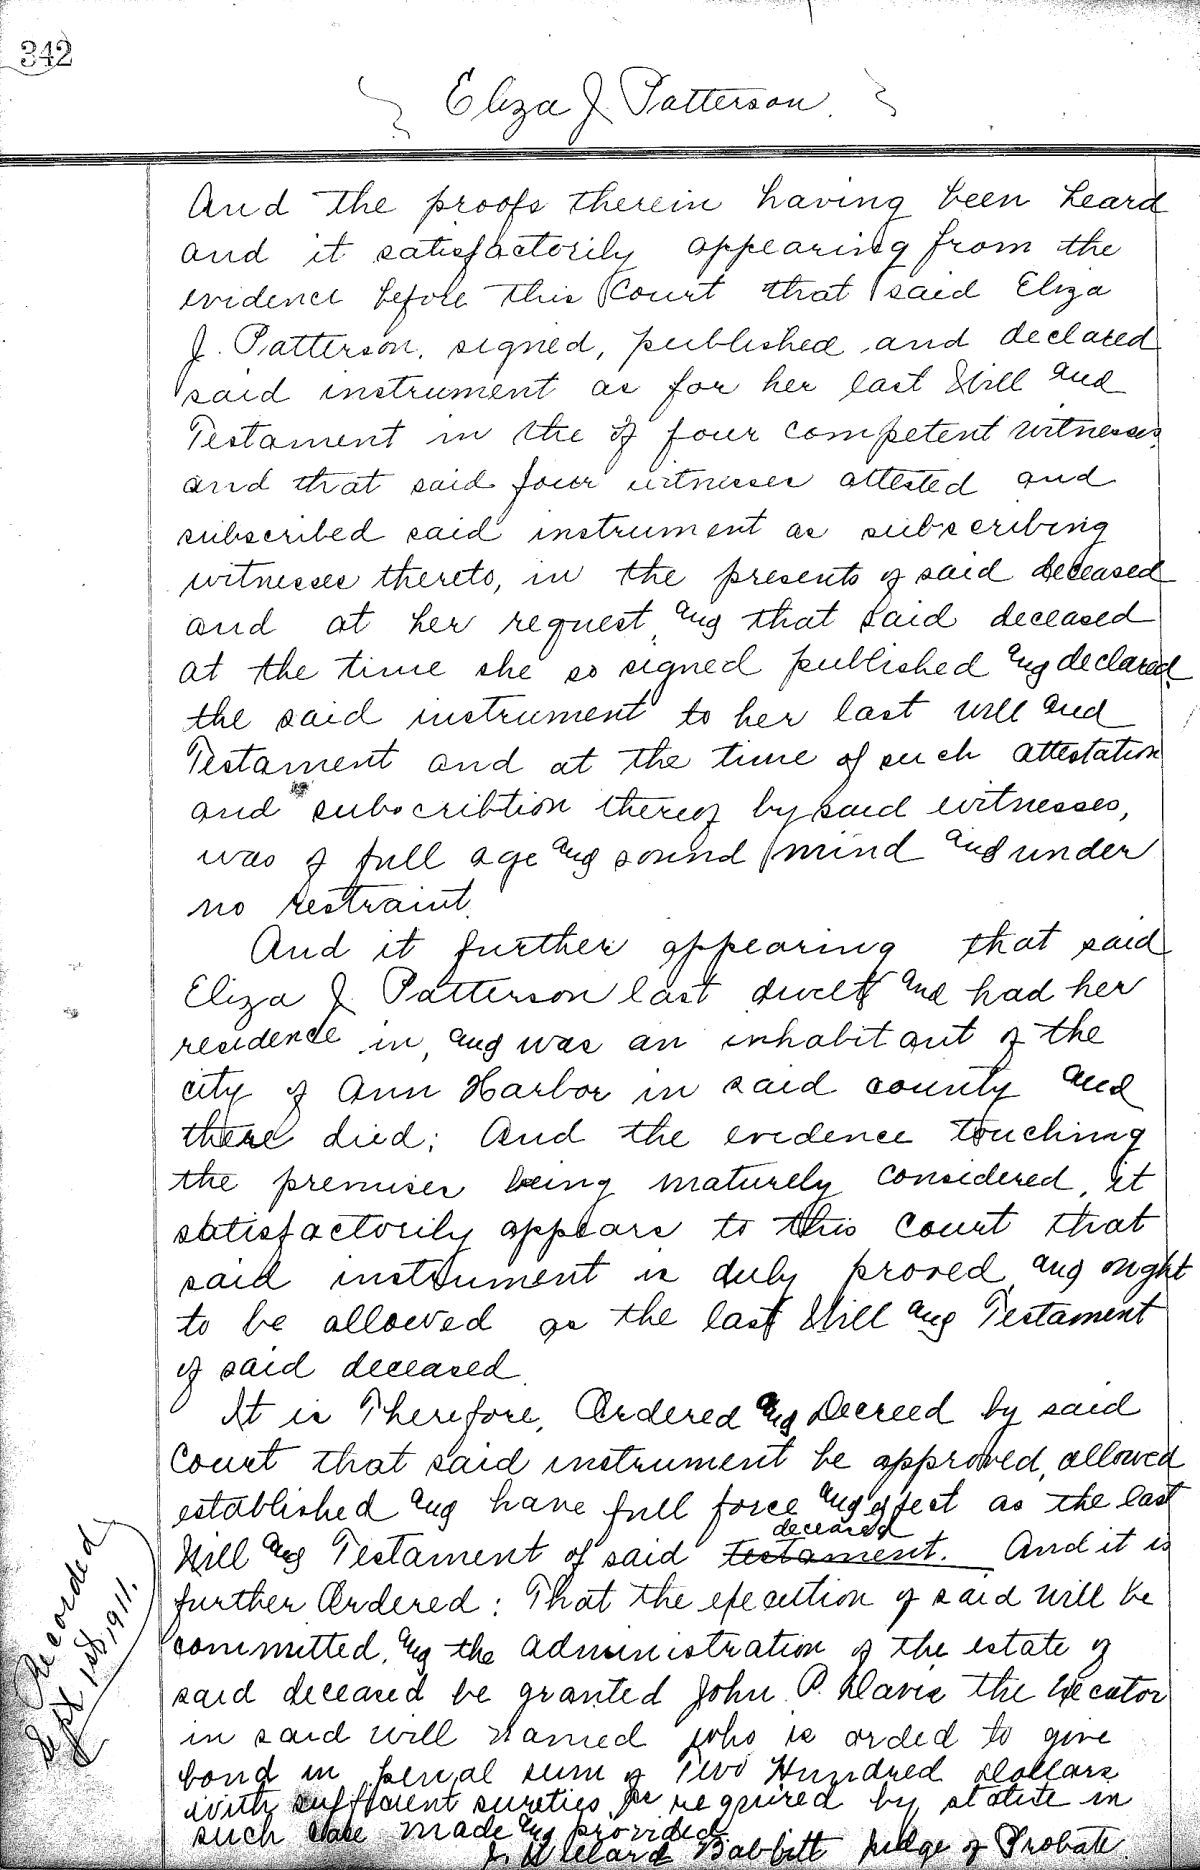 342
Eliza J. Patterson.
And the proofs therein having been heard
and it satisfactorily appearing from the
evidence before this Court that said Eliza
J. Patterson, signed, published and declared
said instrument as for her last Will and
Testament in the of four competent witnesses
and that said four witnesses attested and
subscribed said instrument as subscribing
witnesses thereto, in the presents of said deceased
and at her request, and that said deceased
at the time she so signed published and declared
the said instrument to her last will and
Testament and at the time of such attestation
and subscribtion thereof by said witnesses,
was of full age and sound mind and under
no restraint.
And it further appearing that said
Eliza J. Patterson last dwelt and had her
residence in, and was an inhabitant of the
city of Ann Harbor in said county and
there died; And the evidence touching
the premises being maturely considered, it
satisfactorily appears to this court that
said instrument is duly proved and ought
to be allowed as the last Will and Testament
of said deceased.
It is Therefore, Ordered and Decreed by said
Court that said instrument be approved, allowed
established and have full force and effect as the last
deceased
Will and Testament of said testament. And it is
further Ordered: That the execution of said will be
committed, and the administration of the estate of
said deceased be granted John P. Davis the Executor
in said will named who is orded to give
bond in penal sum of Two Hundred Dollars
with sufficient sureties as required by statute in
such case made and provided
Willard Babbitt Judge of Probate.
Recorded
Sept 1st, 1911.